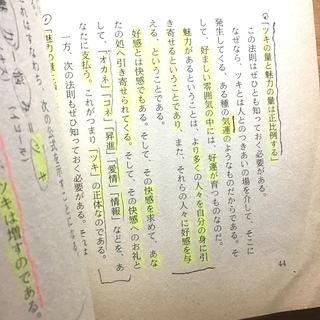 ツキの量と魅力の量は正比例する
この法則はぜひとも知っておく必要がある。
なぜなら、ツキとは人とのつきあいの場を介して、そこに
発生してくる、ある種の気運のようなものだからである。そ
して、好ましい雰囲気の中には、好運が育つものなのだ。
魅力があるということは、より多くの人々を自分の身に引
き寄せるということであり、また、それらの人々に好感を与
える、ということである。
好感とは快感でもある。そして、その快感を求めて、あな
たの処へ引き寄せられてくる。そして、その快感へのお礼と
して、「オカネ」「コネ」「昇進」「愛情」「情報」などを、あ
なたに支払う。これがつまり「ツキ」の正体なのである。
一方、次の法則もぜひ知っておく必要がある。
44
次の公式を
すなわち、
ツキは増すのである。